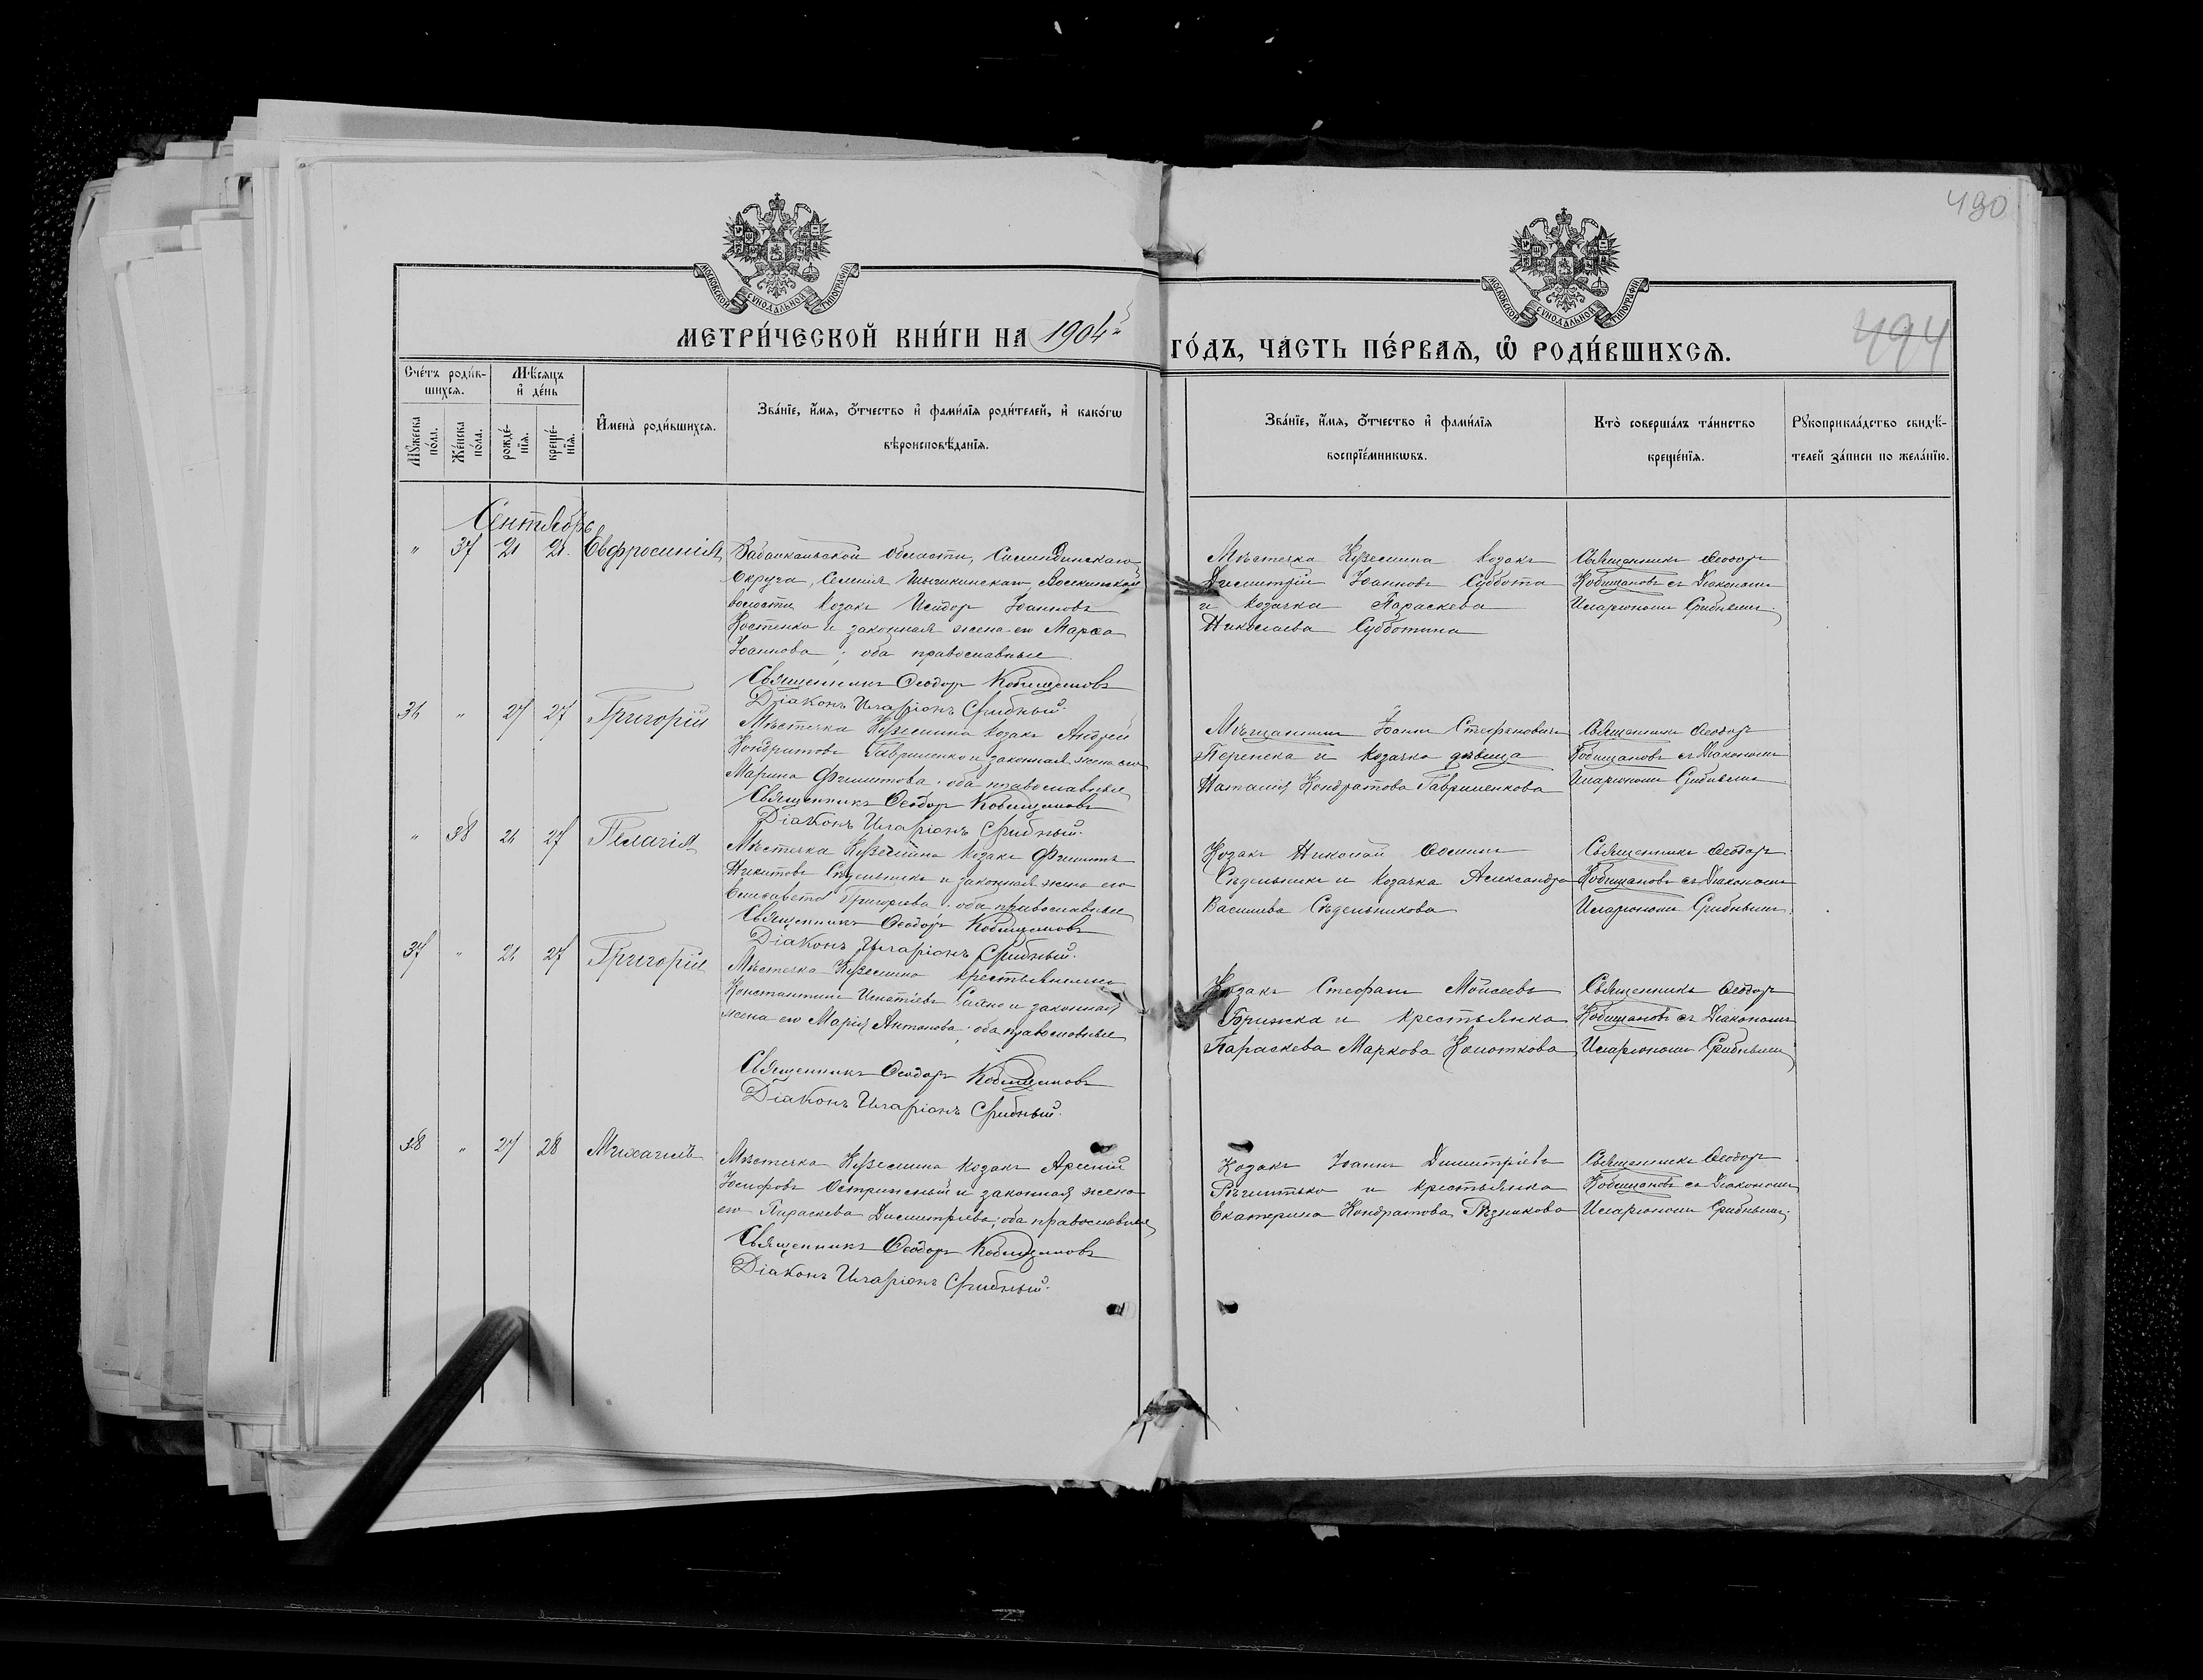 490
494
МОСКОВСКОЙ СѴНОДАЛЬНОЙ ТИПОГРАФІИ
МОСКОВСКОЙ СѴНОДАЛЬНОЙ ТИПОГРАФІИ
МЕТРИ́ЧЕСКОЙ КНИ́ГИ НА 1904й
ГО́ДЪ, ЧА́СТЬ ПЕ́РВАЯ, Ѡ҆ РОДИ́ВШИХСЯ.
Сче́тъ роди́в-
шихся.
Мѣ́сяцъ
и҆ де́нь
Мꙋ́жеска
по́ла.
Же́нска
по́ла.
рожде́-
нїя.
креще́-
нїя.
И҆мена̀ роди́вшихся.
Зва́нїе, и҆́мя, ѻ҆́тчество и҆ фами́лїя роди́телей, и҆ како́гѡ
вѣроисповѣ́данїя.
Зва́нїе, и҆́мя, ѻ҆́тчество и҆ фами́лїя
воспрїе́мникѡвъ.
Кто̀ соверша́лъ та́инство
креще́нїя.
Рꙋкоприкла́дство свидѣ́-
телей за́писи по жела́нїю.
Сентябрь
" 37 21 21. Евфросинія
Забайкальской области,
Округа, Селенія
волости, козакъ Исидоръ Іоанновъ
Костенко и законная жена его Марѳа
Іоаннова; оба православные
Священникъ Ѳеодоръ Кобищановъ
Діаконъ Иларіонъ Срибный.
Мѣстечка Куземина козакъ
Димитрій Іоанновъ Суббота
и козачка Параскева
Николаева Субботина
Священникъ Ѳеодоръ
Кобищановъ съ Діакономъ
Иларіономъ Срибнымъ.
36 " 27 27 Григорій
Мѣстечка Куземина козакъ Андрей
Кондратовъ Гавриленко и законная жена его
Марина Филиппова; оба православные
Священникъ Ѳеодоръ Кобищановъ
Діаконъ Иларіонъ Срибный.
Мѣщанинъ Іоаннъ Стефановичъ
и козачка дѣвица
Наталія Кондратова Гавриленкова
Священникъ Ѳеодоръ
Кобищановъ съ Діакономъ
Иларіономъ Срибнымъ
" 38 26 27 Пелагія
Мѣстечка Куземина козакъ Филиппъ
Никитовъ Сѣдельникъ и законная жена его
Елисавета Григорьева; оба православные
Священникъ Ѳеодоръ Кобищановъ
Діаконъ Иларіонъ Срибный.
Козакъ Николай Ѳоминъ
Сѣдельникъ и козачка Александра
Василіева Сѣдельникова
Священникъ Ѳеодоръ
Кобищановъ съ Діакономъ
Иларіономъ Срибнымъ.
37 " 26 27 Григорій
Мѣстечка Куземина крестьянинъ
Константинъ Игнатіевъ и законная
жена его Марія Антонова; оба православные
Священникъ Ѳеодоръ Кобищановъ
Діаконъ Иларіонъ Срибный.
Козакъ Стефанъ Моисеевъ
Брижка и крестьянка
Параскева Маркова
Священникъ Ѳеодоръ
Кобищановъ съ Діакономъ
Иларіономъ Срибнымъ
38 " 27 28 Михаилъ
Мѣстечка Куземина козакъ Арсеній
Іосифовъ и законная жена
его Параскева Димитріева; оба православные
Священникъ Ѳеодоръ Кобищановъ
Діаконъ Иларіонъ Срибный.
Козакъ Іоаннъ Димитріевъ
и крестьянка
Екатерина Кондратова Рѣзникова
Священникъ Ѳеодоръ
Кобищановъ съ Діакономъ
Иларіономъ Срибнымъ.